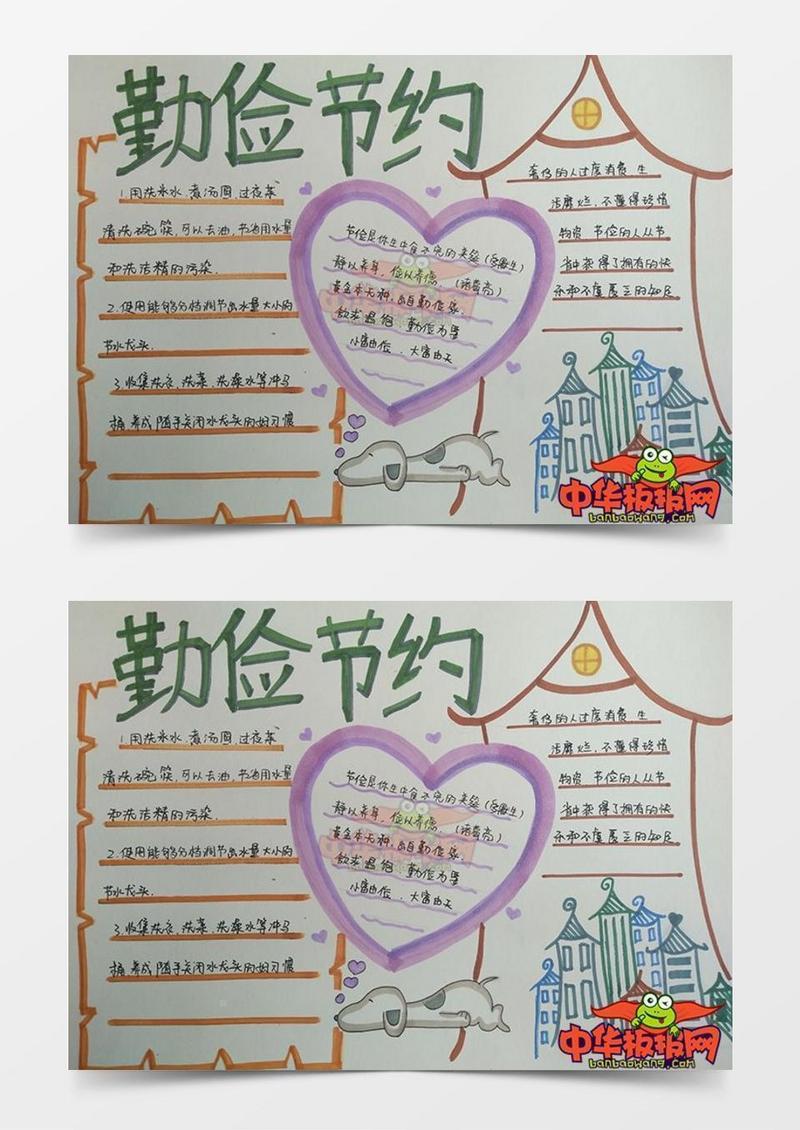 勤俭节约
1.用洗米水、煮汤圆、过夜茶
清洗碗筷,可以去油,节省用水量
和洗洁精的污染.
2.使用能够分档调节出水量大小的
节水龙头.
3.收集洗衣、洗菜、洗澡水等冲马
桶.养成随手关闭水龙头的好习惯
节俭是你一生中食不完的美筵(爱默生)
静以养身,俭以养德.(诸葛亮)
小富由俭,大富由天
奢侈的人过度消费 生
活糜烂,不懂得珍惜
物资 节俭的人从节
省中获得了拥有的快
中华板报网
banbaowang.com
勤俭节约
1.用洗米水、煮汤圆、过夜茶
清洗碗筷,可以去油,节省用水量
和洗洁精的污染.
2.使用能够分档调节出水量大小的
节水龙头.
3.收集洗衣、洗菜、洗澡水等冲马
桶.养成随手关闭水龙头的好习惯
节俭是你一生中食不完的美筵(爱默生)
静以养身,俭以养德.(诸葛亮)
小富由俭,大富由天
奢侈的人过度消费 生
活糜烂,不懂得珍惜
物资 节俭的人从节
省中获得了拥有的快
中华板报网
banbaowang.com